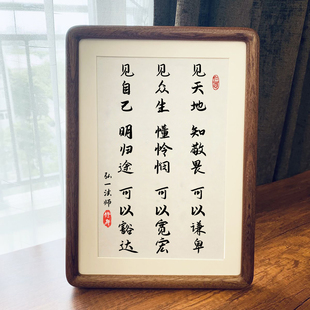 见天地 知敬畏 可以谦卑
见众生 懂怜悯 可以宽宏
见自己 明归途 可以豁达
弘一法师